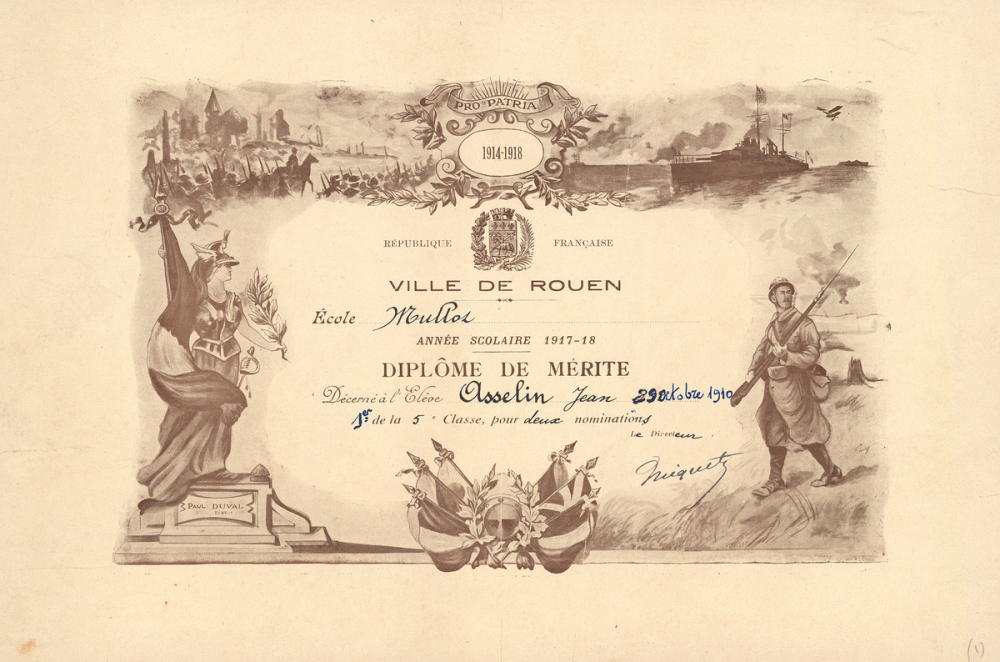 PRO PATRIA
1914-1918
RÉPUBLIQUE FRANÇAISE
VILLE DE ROUEN
École Mullot
ANNÉE SCOLAIRE 1917-18
DIPLÔME DE MÉRITE
Décerné à l'Élève Asselin Jean 29 Octobre 1910
1er de la 5e Classe, pour deux nominations
Le Directeur.
PAUL DUVAL
(1)